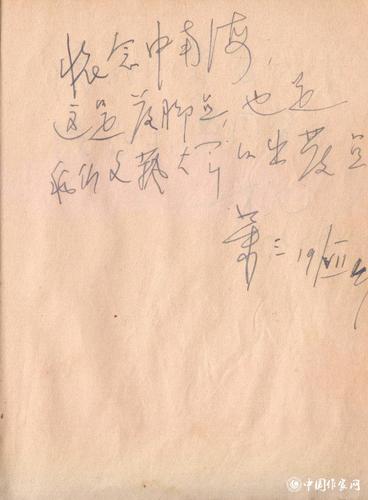 怀念中南海,
这是落脚点,也是
我们文艺大军的出发点
萧三 19/VII
中国作家网